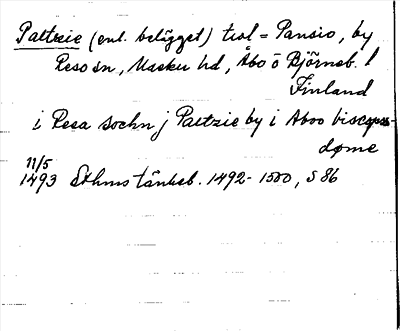 Paltzie (enl. belägget) trol = Pansio, by
Reso sn, Masku hd, Åbo o Björneb. l
Finland
i Resa sochn j Paltzie by i Aboo biscops-
døme
11/5
1493 Sthms tänkeb. 1492-1500, s 86